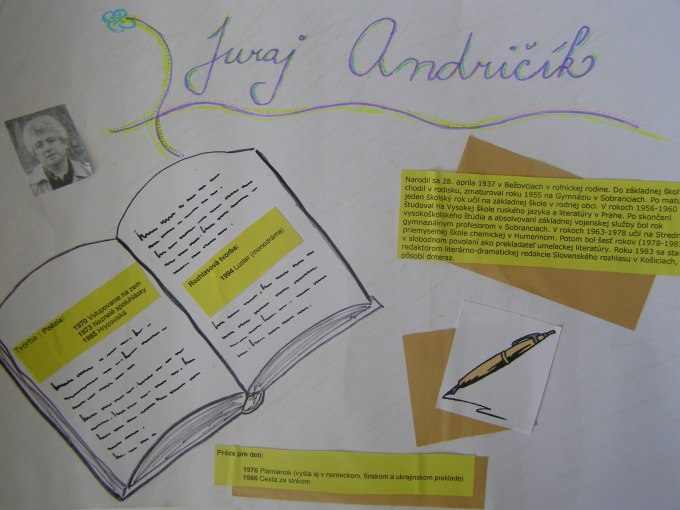 Juraj Andričík
Narodil sa 28. apríla 1937 v Bežovciach v roľníckej rodine. Do základnej škol
chodil v rodisku, zmaturoval roku 1955 na Gymnáziu v Sobranciach. Po matu
jeden školský rok učil na základnej škole v rodnej obci. V rokoch 1956-1960
študoval na Vysokej škole ruského jazyka a literatúry v Prahe. Po skončení
vysokoškolského štúdia a absolvovaní základnej vojenskej služby bol rok
gymnaziálnym profesorom v Sobranciach. V rokoch 1963-1978 učil na Stredn
priemyselnej škole chemickej v Humennom. Potom bol šesť rokov (1978-1983
v slobodnom povolaní ako prekladateľ umeleckej literatúry. Roku 1983 sa sta
redaktorom literárno-dramatickej redakcie Slovenského rozhlasu v Košiciach,
pôsobí doteraz.
Tvorba : Poézia:
1970 Vstupovanie na zem
1973 Nezrelé spoluhlásky
1985 Hryzoviská
Rozhlasová tvorba:
1994 Luster (monodráma)
Próza pre deti:
1976 Plamienok (vyšla aj v nemeckom, fínskom a ukrajinskom preklade)
1986 Cesta za slnkom